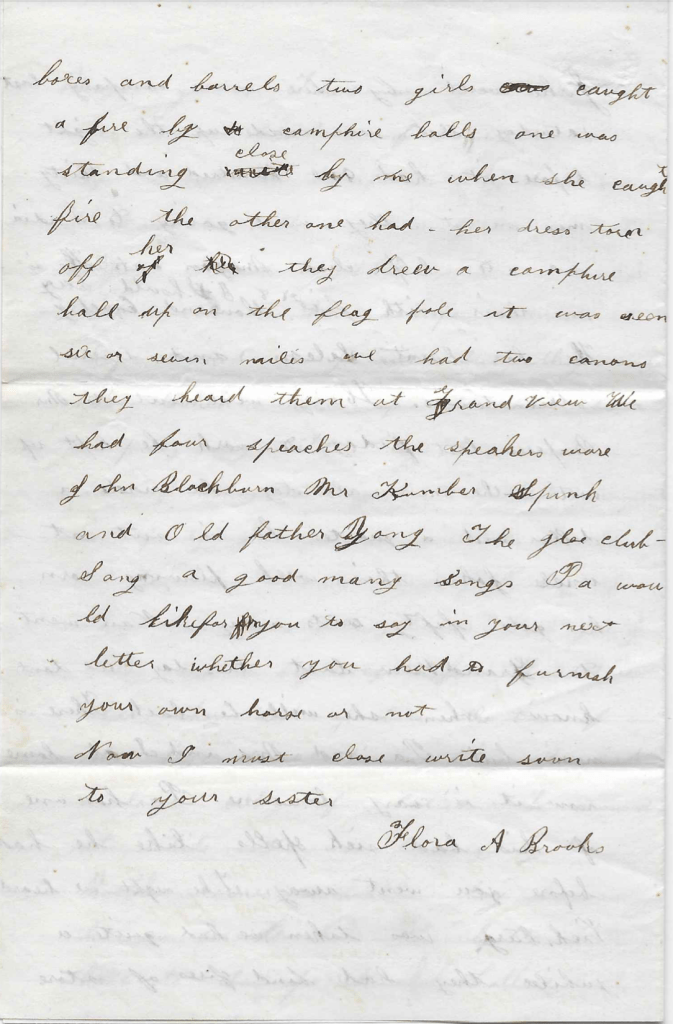 boxes and barrels two girls caught
a fire by camphire balls one was
standing close by me when she caught
fire the other one had - her dress torn
off her they drew a camphire
ball up on the flag pole it was seen
six or seven miles we had two canons
they heard them at Grand View We
had four speaches the speakers ware
John Blackburn Mr Kumber Spink
and Old father Yong The gloe club -
Sang a good many songs Pa wou
ld like for you to say in your next
letter whether you had to furnish
your own horse or not
Now I must close write soon
to your sister
Flora A Brooks